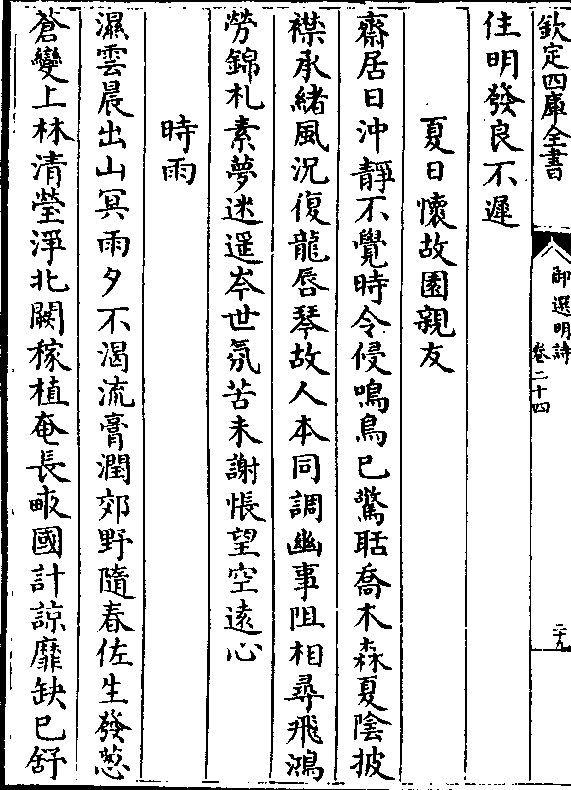 欽定四庫全書
御選明詩
卷二十四
二十九
住明發良不遲
夏日懷故園親友
齋居日沖靜不覺時令侵鳴鳥已驚聒喬木森夏陰披
襟承緒風況復龍唇琴故人本同調幽事阻相尋飛鴻
勞錦札素夢迷遥岑世氛苦未謝悵望空遠心
時雨
濕雲晨出山冥雨夕不渴流膏潤郊野隨春佐生發葱
蒼變上林清瑩淨北闕稼植奄長畮國計諒靡缺已舒